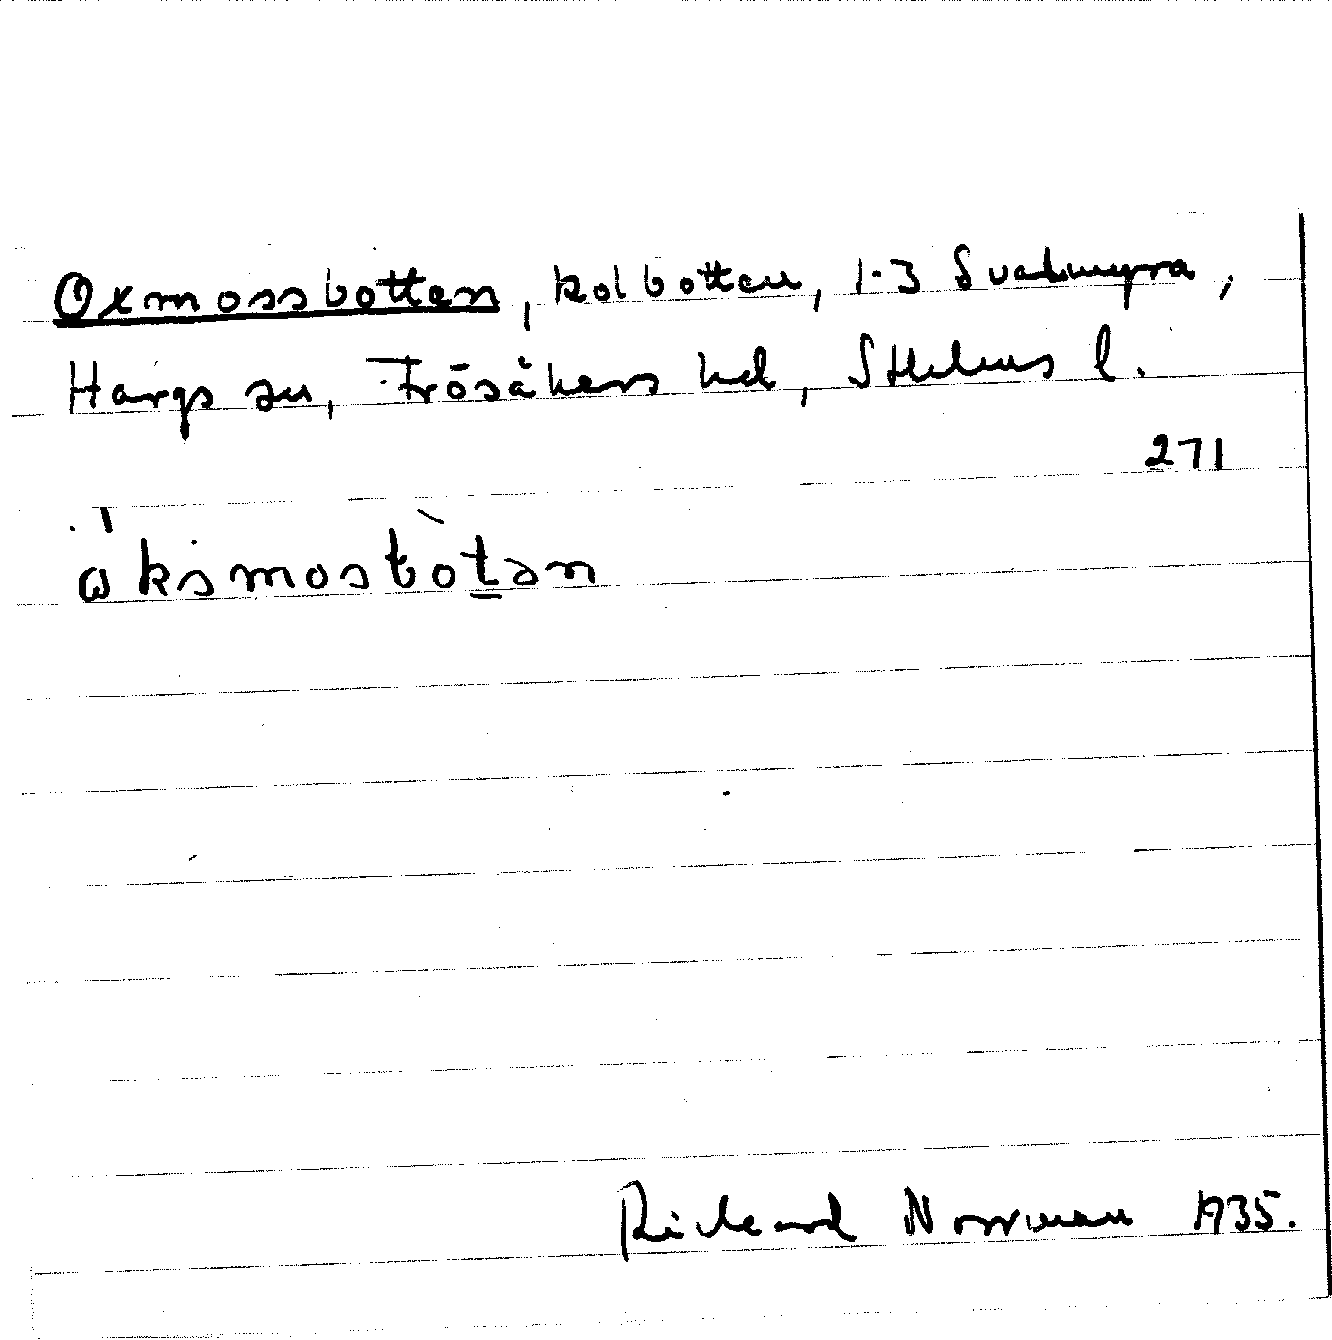 Oxmossbotten, kolbotten, 1-3 Svalmyra,
Hargs sn, Frösåkers hd, Sthlms l.
271
Rickard Norrman 1935.